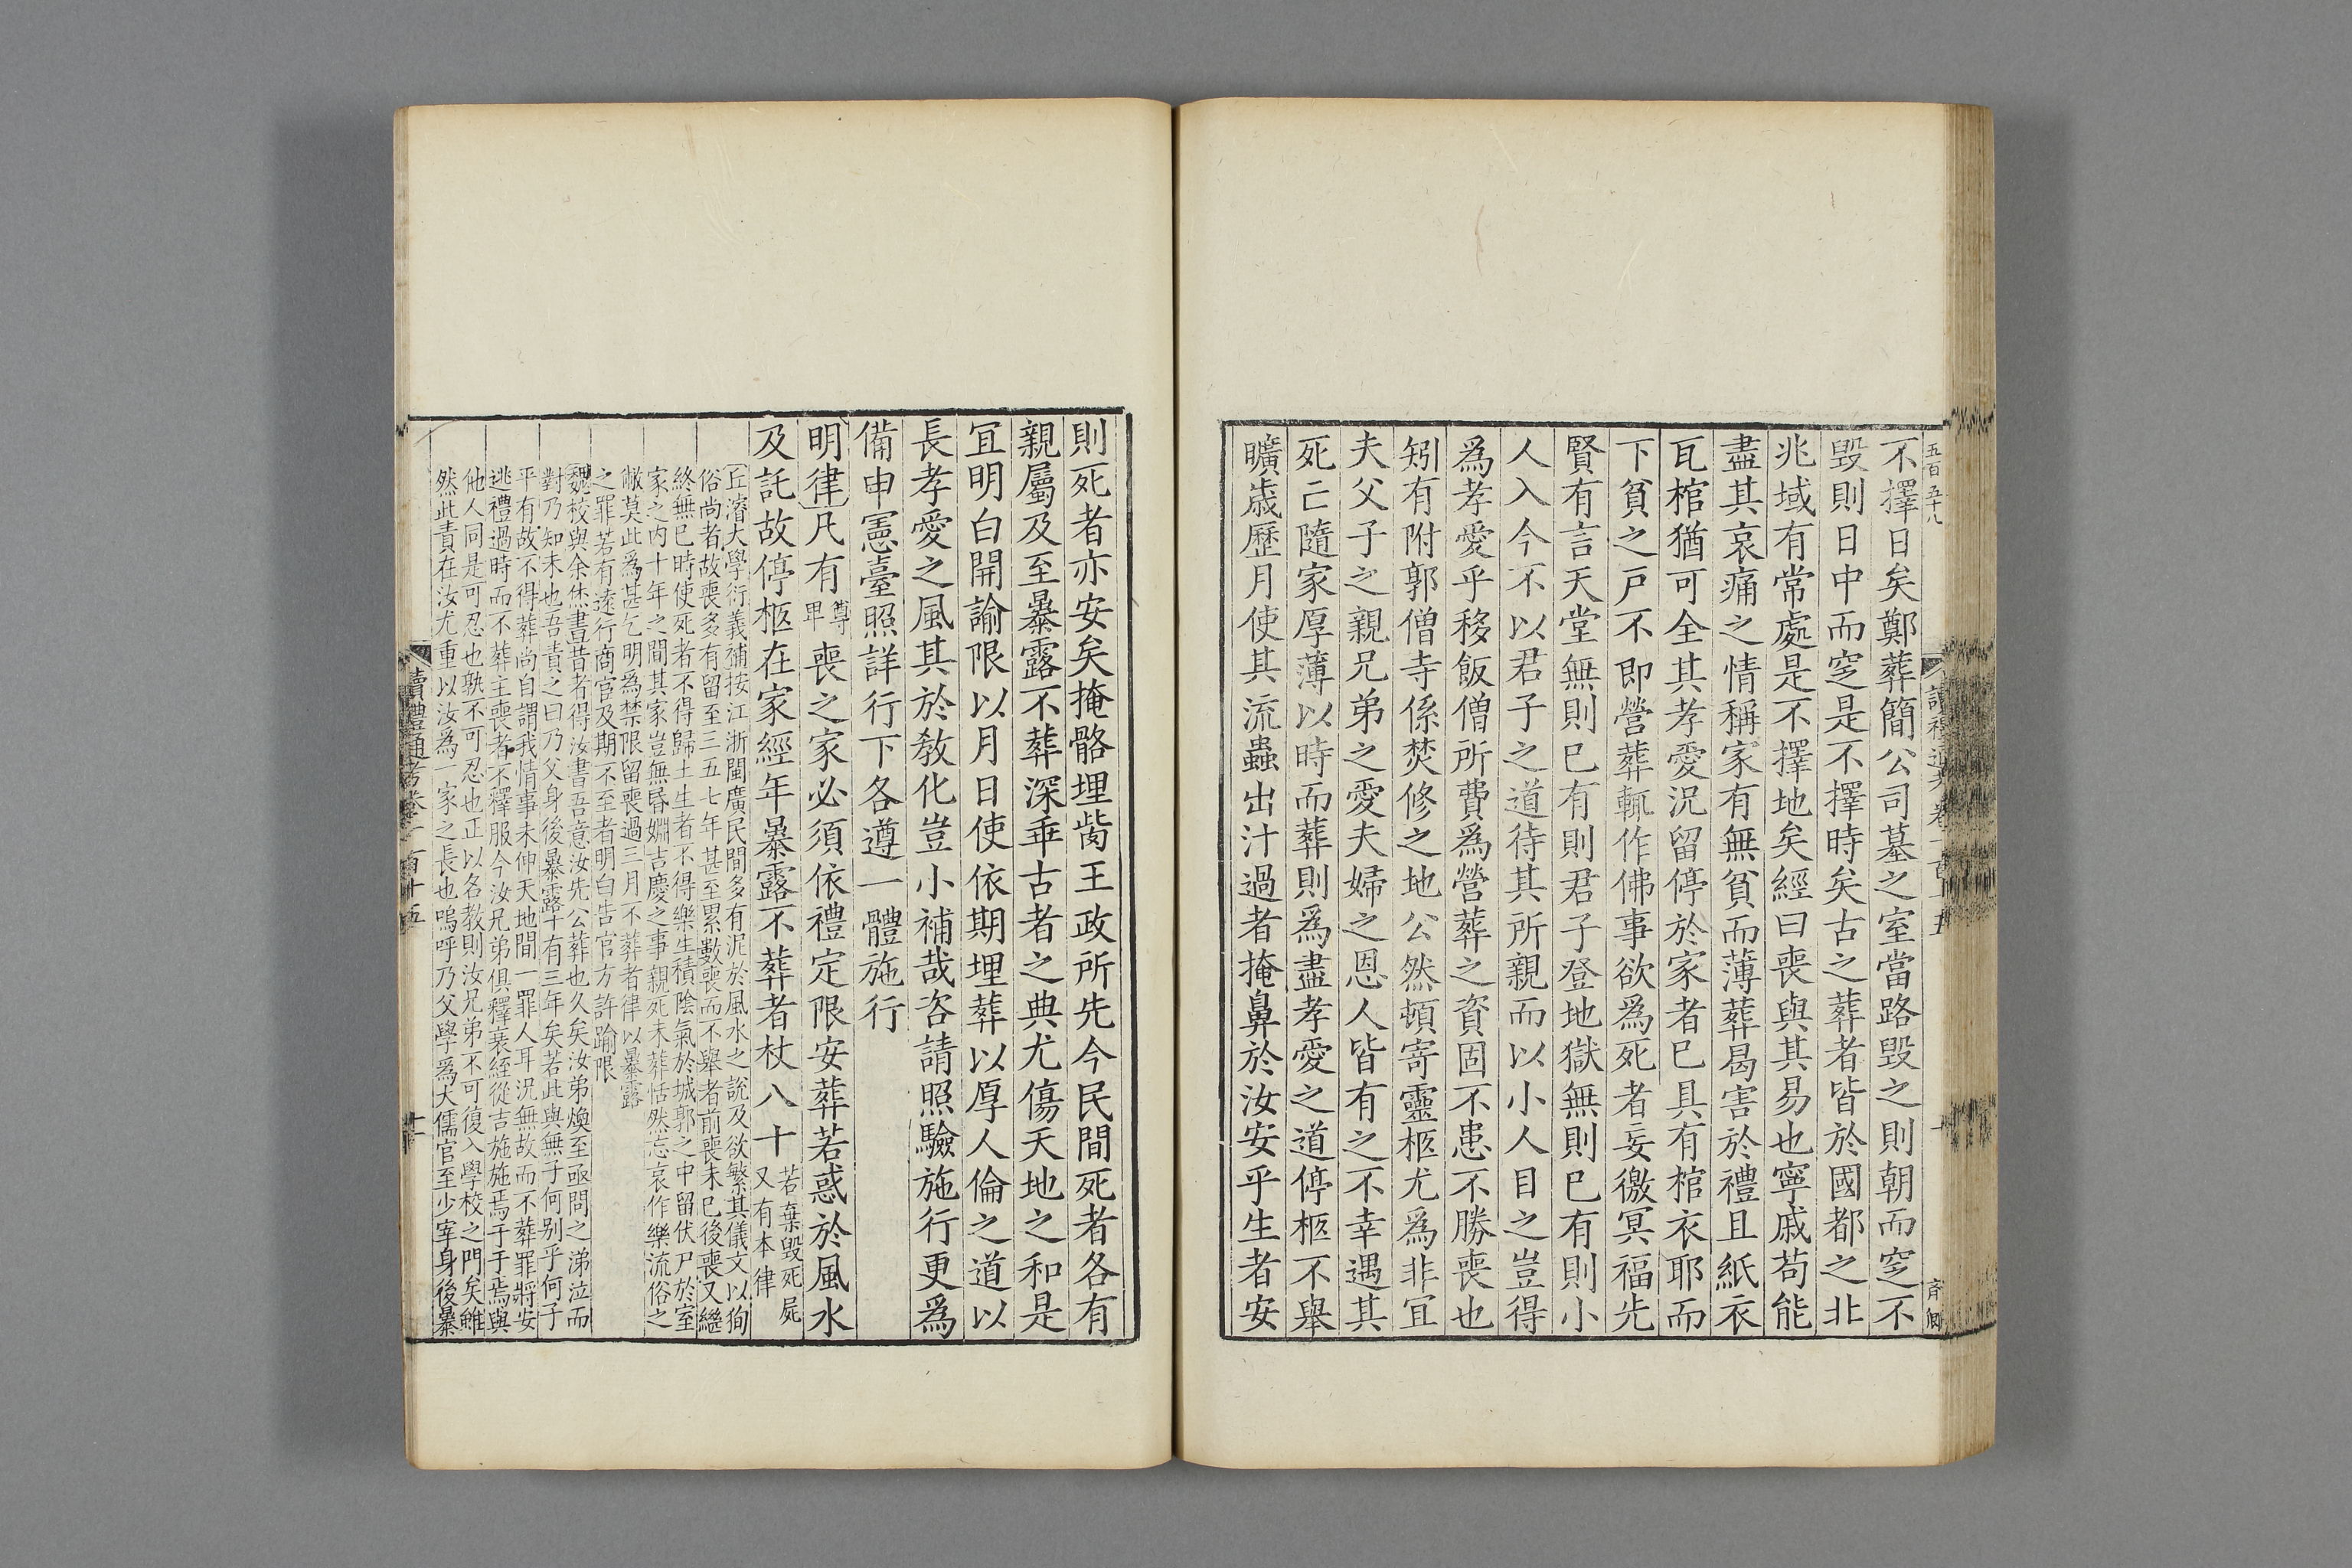 五百五十八
不擇日矣鄭葬簡公司墓之室當路毀之則朝而窆不
毀則日中而窆是不擇時矣古之葬者皆於國都之北
兆域有常處是不擇地矣經曰喪與其易也寧戚苟能
盡其哀痛之情稱家有無貧而薄葬曷害於禮且紙衣
瓦棺猶可全其孝愛況留停於家者已具有棺衣耶而
下貧之戸不即營葬輒作佛事欲爲死者妄徼冥福先
賢有言天堂無則已有則君子登地獄無則已有則小
人入今不以君子之道待其所親而以小人目之豈得
爲孝愛乎移飯僧所費爲營葬之資固不患不勝喪也
矧有附郭僧寺係焚修之地公然頓寄靈柩尤爲非宜
夫父子之親兄弟之愛夫婦之恩人皆有之不幸遇其
死亡隨家厚薄以時而葬則爲盡孝愛之道停柩不舉
曠歲歷月使其流蟲出汁過者掩鼻於汝安乎生者安
則死者亦安矣掩骼埋胔王政所先今民間死者各有
親屬及至暴露不葬深乖古者之典尤傷天地之和是
宜明白開諭限以月日使依期埋葬以厚人倫之道以
長孝愛之風其於敎化豈小補哉咨請照驗施行更爲
備申憲臺照詳行下各遵一體施行
明律凡有尊卑喪之家必須依禮定限安葬若惑於風水
及託故停柩在家經年暴露不葬者杖八十若棄毀死屍又有本律
丘濬大學衍義補按江浙閩廣民間多有泥於風水之說及欲繁其儀文以徇
俗尚者故喪多有留至三五七年甚至累數喪而不舉者前喪未已後喪又繼
終無已時使死者不得歸土生者不得樂生積陰氣於城郭之中留伏尸於室
家之内十年之間其家豈無昏婣吉慶之事親死未葬恬然忘哀作樂流俗之
敝莫此爲甚乞明爲禁限留喪過三月不葬者律以暴露
之罪若有遠行商官及期不至者明白告官方許踰限
魏校與余烋書昔者得汝書吾意汝先公葬也久矣汝弟煥至亟問之涕泣而
對乃知未也吾責之曰乃父身後暴露十有三年矣若此與無子何別乎何子
乎有故不得葬尚自謂我情事未伸天地間一罪人耳況無故而不葬罪將安
逃禮過時而不葬主喪者不釋服今汝兄弟俱釋衰絰從吉施施焉于于焉與
他人同是可忍也孰不可忍也正以名教則汝兄弟不可復入學校之門矣雖
然此責在汝尤重以汝爲一家之長也嗚呼乃父學爲大儒官至少宰身後暴
讀禮通考卷一百十五